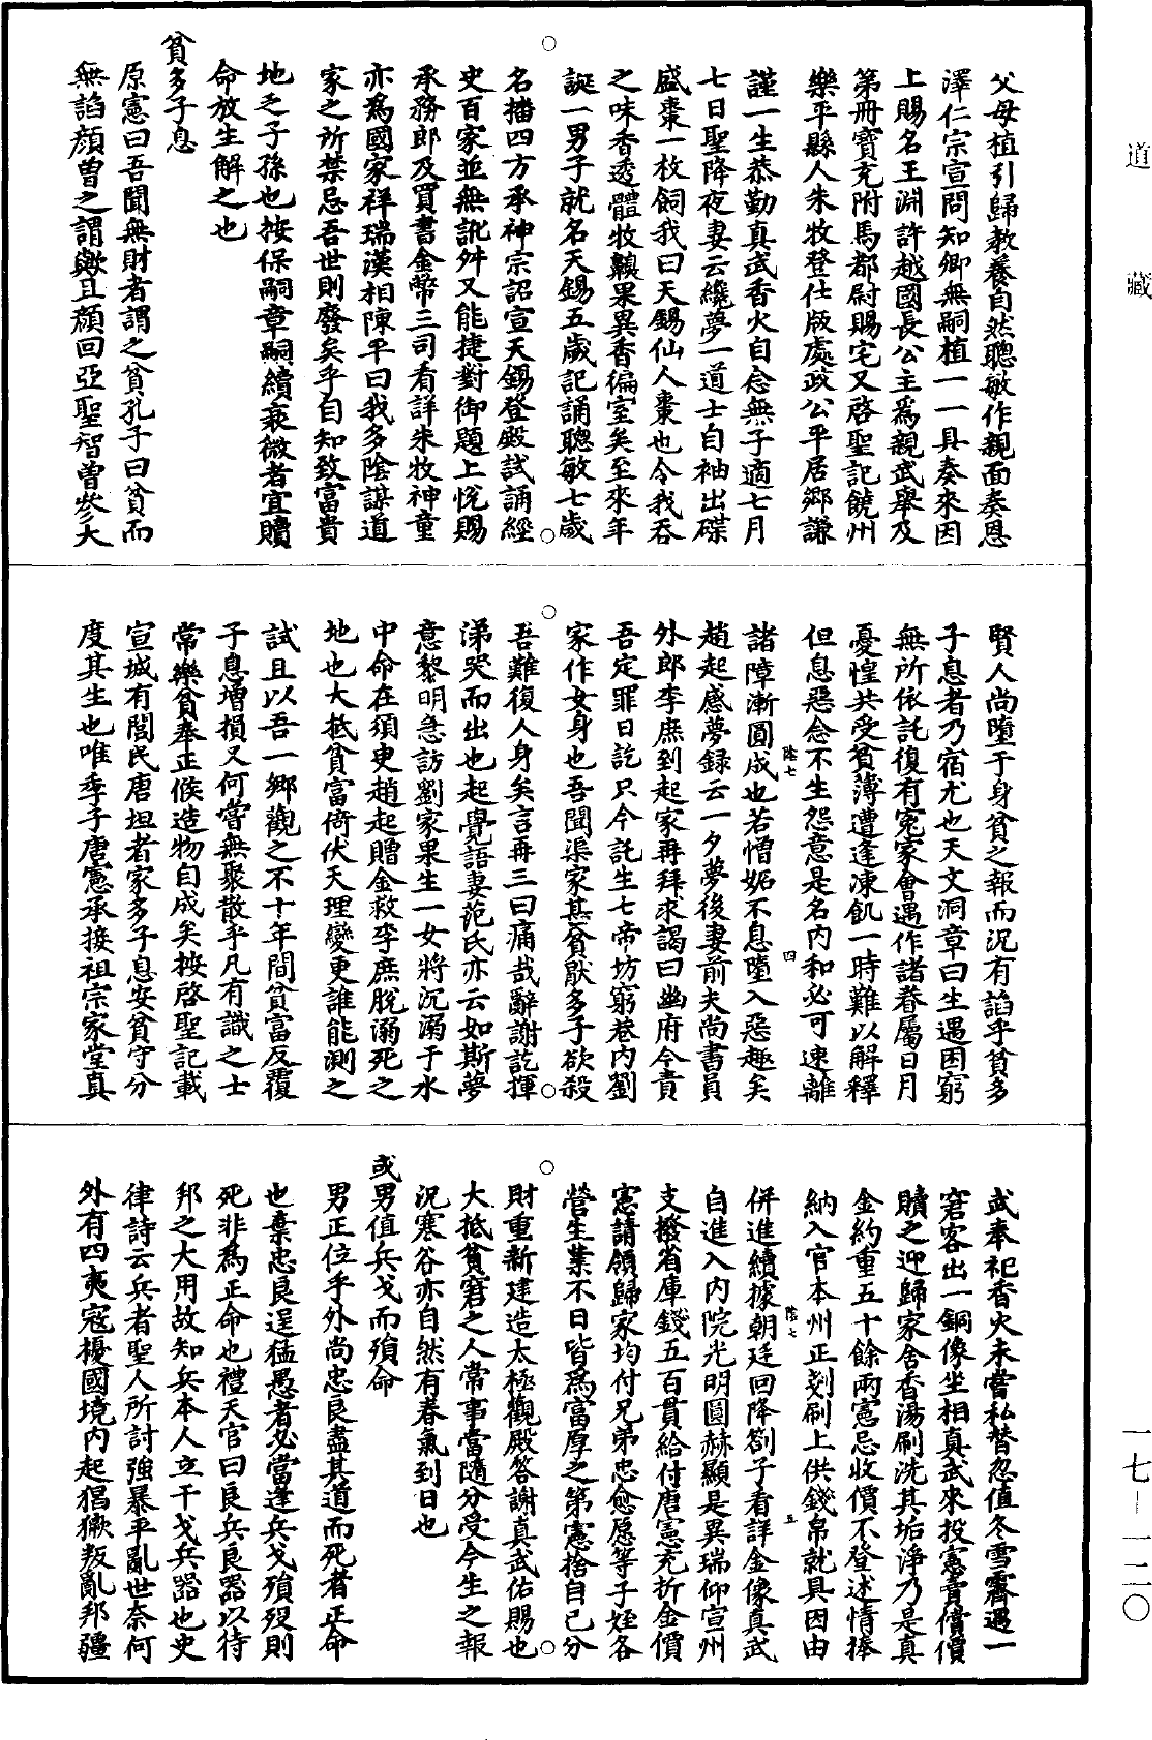 道藏
父母植引歸教養自然聰敏作親面奏恩
澤仁宗宣問知卿無嗣植一一具奏來因
上賜名王淵許越國長公主爲親武舉及
第冊寶充附馬都尉賜宅又啓聖記饒州
樂平縣人朱牧登仕版處政公平居鄉謙
謹一生恭勤真武香火自念無子適七月
七日聖降夜妻云纔夢一道士自袖出碟
盛棗一枚飼我曰天錫仙人棗也令我吞
之味香透體牧顙果異香徧室矣至來年
誕一男子就名天錫五歲記誦聰敏七歲
名播四方承神宗詔宣天錫登殿試誦經
史百家並無訛舛又能捷對御題上悅賜
承務郎及買書金幣三司看詳朱牧神童
亦爲國家祥瑞漢相陳平曰我多陰謀道
家之所禁忌吾世則廢矣乎自知致富貴
地乏子孫也按保嗣章嗣續衰微者宜贖
命放生解之也
貧多子息
原憲曰吾聞無財者謂之貧孔子曰貧而
無諂顏曾之謂歟且顏回亞聖智曾參大
賢人尚墮于身貧之報而況有諂乎貧多
子息者乃宿尤也天文洞章曰生遇困窮
無所依託復有冤家會遇作諸眷屬日月
憂惶共受貧薄遭逢凍飢一時難以解釋
但息惡念不生怨意是名內和必可速離
陰七 四
諸障漸圓成也若憎妬不息墮入惡趣矣
趙起感夢錄云一夕夢後妻前夫尚書員
外郎李庶到起家再拜求謁曰幽府今責
吾定罪日訖只今託生七帝坊窮巷內劉
家作女身也吾聞渠家甚貧猒多子欲殺
吾難復人身矣言再三曰痛哉辭謝訖揮
涕哭而出也起覺語妻范氏亦云如斯夢
意黎明急訪劉家果生一女將沉溺于水
中命在須臾趙起贈金救李庶脫溺死之
地也大抵貧富倚伏天理變更誰能測之
試且以吾一鄉觀之不十年間貧富反覆
子息增損又何嘗無聚散乎凡有識之士
常樂貧奉正候造物自成矣按啓聖記載
宣城有閭民唐坦者家多子息安貧守分
度其生也唯季子唐憲承接祖宗家堂真
武奉祀香火未嘗私替忽值冬雪霽遇一
窘客出一銅像坐相真武來投憲賣償價
贖之迎歸家舍香湯刷洗其垢淨乃是真
金約重五十餘兩憲忌收價不登述情捧
納入官本州正刻刷上供錢帛就具因由
陰七 五
併進續據朝廷回降劄子看詳金像真武
自進入內院光明圓赫顯是異瑞仰宣州
支撥省庫錢五百貫給付唐憲充折金價
憲請領歸家均付兄弟忠愈愿等子姪各
營生業不日皆爲富厚之第憲捨自己分
財重新建造太極觀殿答謝真武佑賜也
大抵貧窘之人常事當隨分受今生之報
況寒谷亦自然有春氣到日也
或男值兵戈而殞命
男正位乎外尚忠良盡其道而死者正命
也棄忠良逞猛愚者必當逢兵戈殞歿則
死非爲正命也禮天官曰良兵良器以待
邦之大用故知兵本人立干戈兵器也史
律詩云兵者聖人所討強暴平亂世奈何
外有四夷寇擾國境內起猖獗叛亂邦疆
一七—一二〇